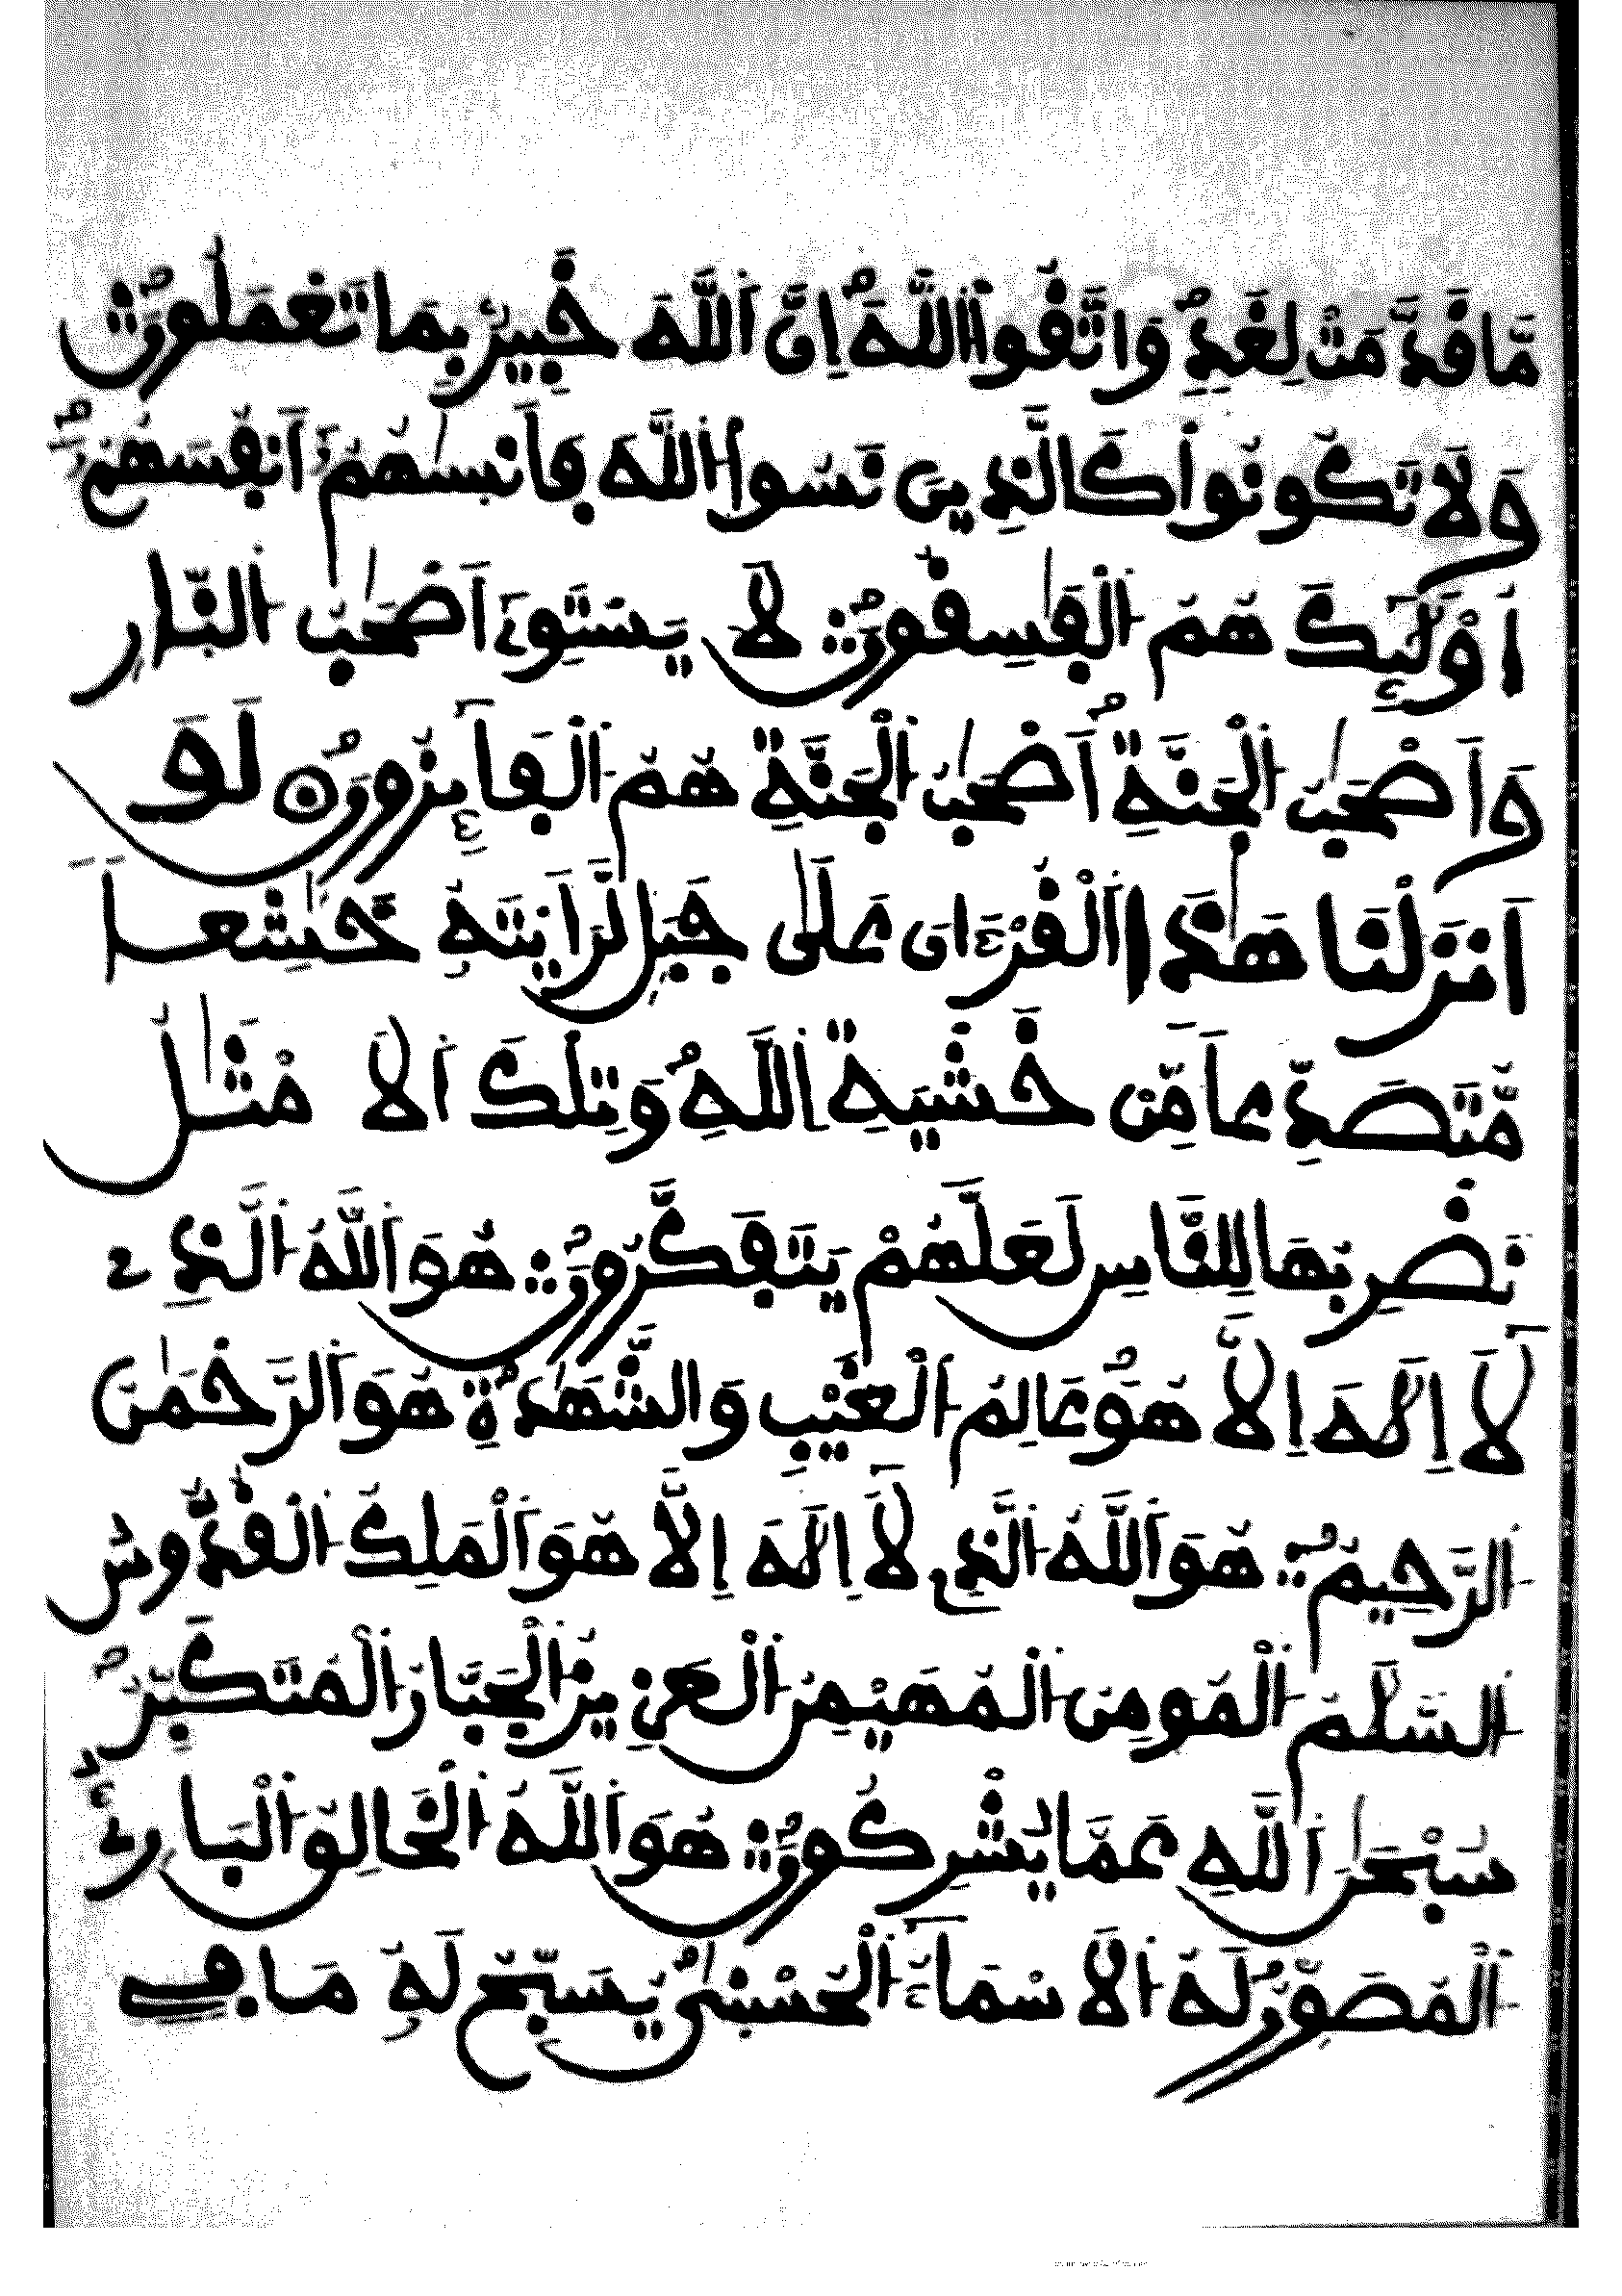 مَّا قَدَّمَتْ لِغَدٍ وَاتَّقُوا اللَّهَ إِنَّ اَللَّهَ خَبِيرٌ بِمَا تَعْمَلُونَ
وَلَا تَكُونُوا كَالَّذِينَ نَسُوا اللَّهَ فَأَنْسٰىهُمْ أَنفُسَهُمْ
أُوْلَٰئِكَ هُمُ الْفَٰسِقُونَ لَا يَسْتَوِي أَصْحَٰبُ النَّارِ
وَأَصْحَٰبُ الْجَنَّةِ أَصْحَٰبُ الْجَنَّةِ هُمُ الْفَآئِزُونَ لَوَ
اَنزَلْنَا هَٰذَا الْقُرْءَانَ عَلَىٰ جَبَلٍ لَّرَأَيْتَهُ خَٰشِعاً
مُّتَصَدِّعاً مِّنْ خَشْيَةِ اللَّهِ وَتِلْكَ الَامْثَٰلُ
نَضْرِبُهَا لِلنَّاسِ لَعَلَّهُمْ يَتَفَكَّرُونَ هُوَ اللَّهُ الَّذِے
لَآ إِلَٰهَ إِلَّا هُوَ عَالِمُ الْغَيْبِ وَالشَّهَٰدَةِ هُوَ الرَّحْمَٰنُ
الرَّحِيمُ هُوَ اللَّهُ الَّذِے لَآ إِلَٰهَ إِلَّا هُوَ الْمَلِكُ الْقُدُّوسُ
السَّلَٰمُ الْمُومِنُ الْمُهَيْمِنُ الْعَزِيزُ الْجَبَّارُ الْمُتَكَبِّرُ
سُبْحَٰنَ اَللَّهِ عَمَّا يُشْرِكُونَ هُوَ اللَّهُ الْخَالِقُ الْبَارِئُ
الْمُصَوِّرُ لَهُ الَاسْمَآءُ الْحُسْنَىٰ يُسَبِّحُ لَهُ مَا فِے